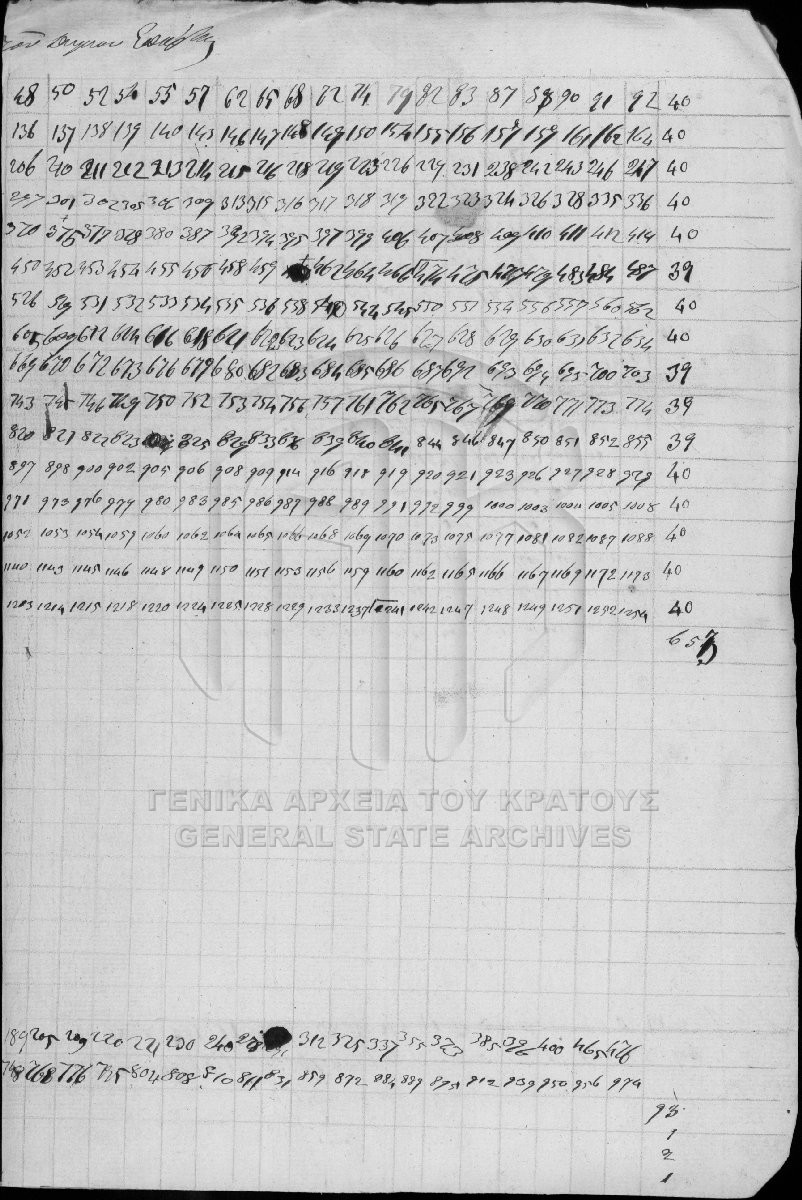 48 50 52 54 55 57 62 65 68 72 74 79 82 83 87 88 90 91 92 40
136 137 138 139 140 143 146 147 148 149 150 154 155 156 157 159 161 162 164 40
206 210 211 212 213 214 215 216 218 219 223 226 229 231 238 242 243 246 247 40
297 301 302 305 306 309 313 315 316 317 318 319 322 323 324 326 328 335 336 40
370 375 377 378 380 387 392 394 395 397 399 406 407 408 409 410 411 412 414 40
450 452 453 454 455 456 458 459 462 464 466 474 475 477 479 483 484 487 39
526 529 531 532 533 534 535 536 538 540 544 545 550 551 554 556 557 560 562 40
605 609 612 614 616 618 621 622 623 624 625 626 627 628 629 630 631 632 634 40
669 670 672 673 676 679 680 682 683 684 685 686 687 692 693 694 695 700 703 39
743 746 749 750 752 753 754 756 757 761 762 765 767 769 770 771 773 774 39
820 821 822 823 825 829 833 836 839 840 841 844 846 847 850 851 852 855 39
897 898 900 902 905 906 908 909 914 916 918 919 920 921 923 926 927 928 929 40
971 973 976 977 980 983 985 986 987 988 989 991 992 999 1000 1003 1004 1005 1008 40
1052 1053 1054 1059 1060 1062 1064 1065 1066 1068 1069 1070 1073 1075 1077 1081 1082 1087 1088 40
1140 1143 1145 1146 1148 1149 1150 1151 1153 1156 1159 1160 1162 1165 1166 1167 1169 1172 1173 40
1203 1214 1215 1218 1220 1224 1225 1228 1229 1233 1237 1241 1242 1247 1248 1249 1251 1252 1254 40
657
ΓΕΝΙΚΑ ΑΡΧΕΙΑ ΤΟΥ ΚΡΑΤΟΥΣ
GENERAL STATE ARCHIVES
189 205 209 220 221 230 240 312 325 337 355 373 385 396 400 465 476
768 776 795 804 808 810 811 831 859 872 884 889 895 912 939 950 956 974
93
1
2
1